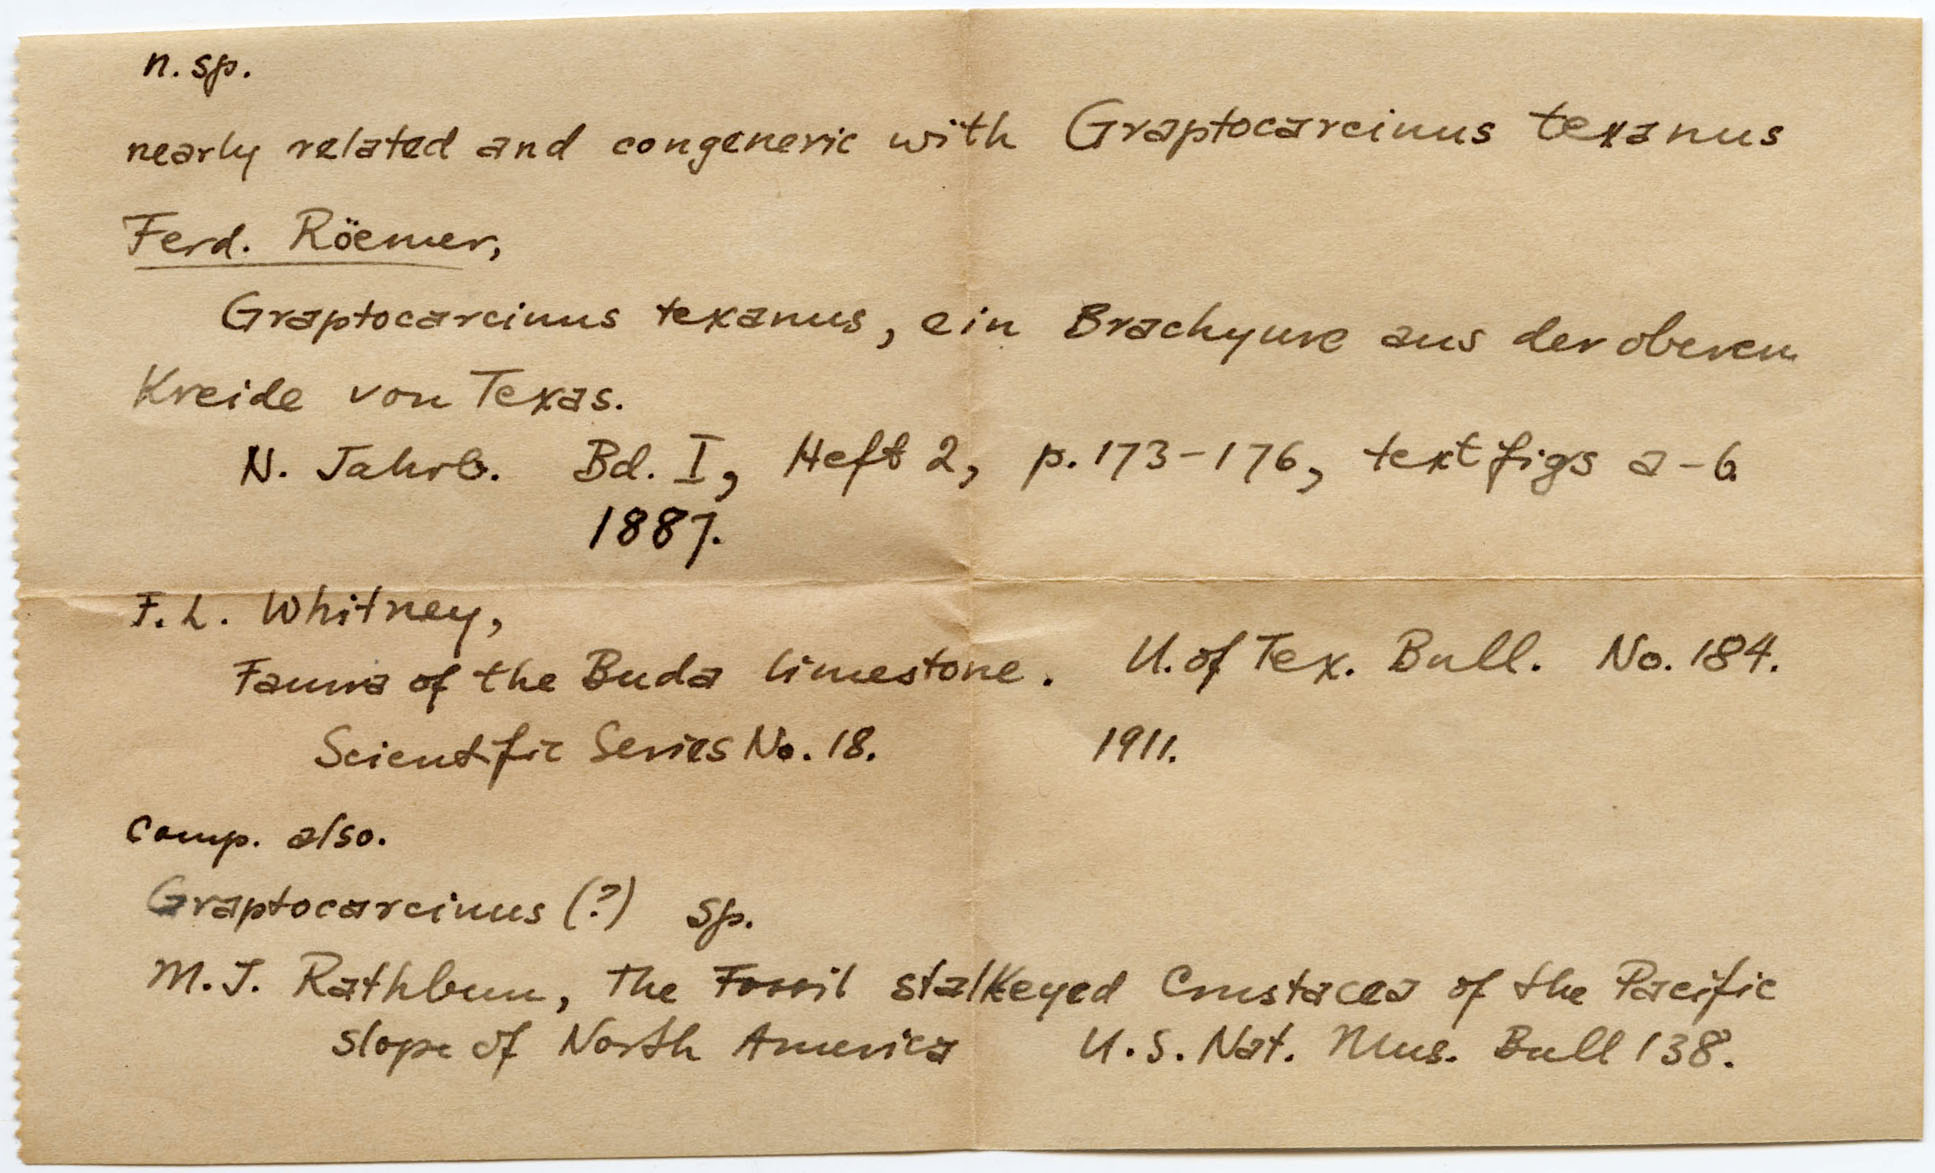 n. sp.
nearly related and congeneric with Graptocarcinus texanus
Ferd. Röemer,
Graptocarcinus texanus, ein Brachyure aus der oberen
Kreide von Texas.
N. Jahrb. Bd. I, Heft 2, p. 173-176, text figs a-b
1887.
F. L. Whitney,
Fauna of the Buda limestone. U. of Tex. Bull. No. 184.
Scientific Series No. 18. 1911.
Comp. also.
Graptocarcinus (?) sp.
M. J. Rathbun, The Fossil stalkeyed Crustacea of the Pacific
slope of North America U. S. Nat. Mus. Bull 138.